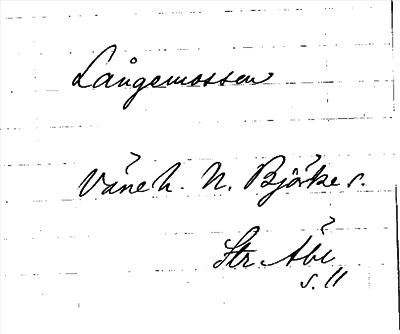 Långemossen
Väne h. N. Björke s.
Str. Åbi
s. 11